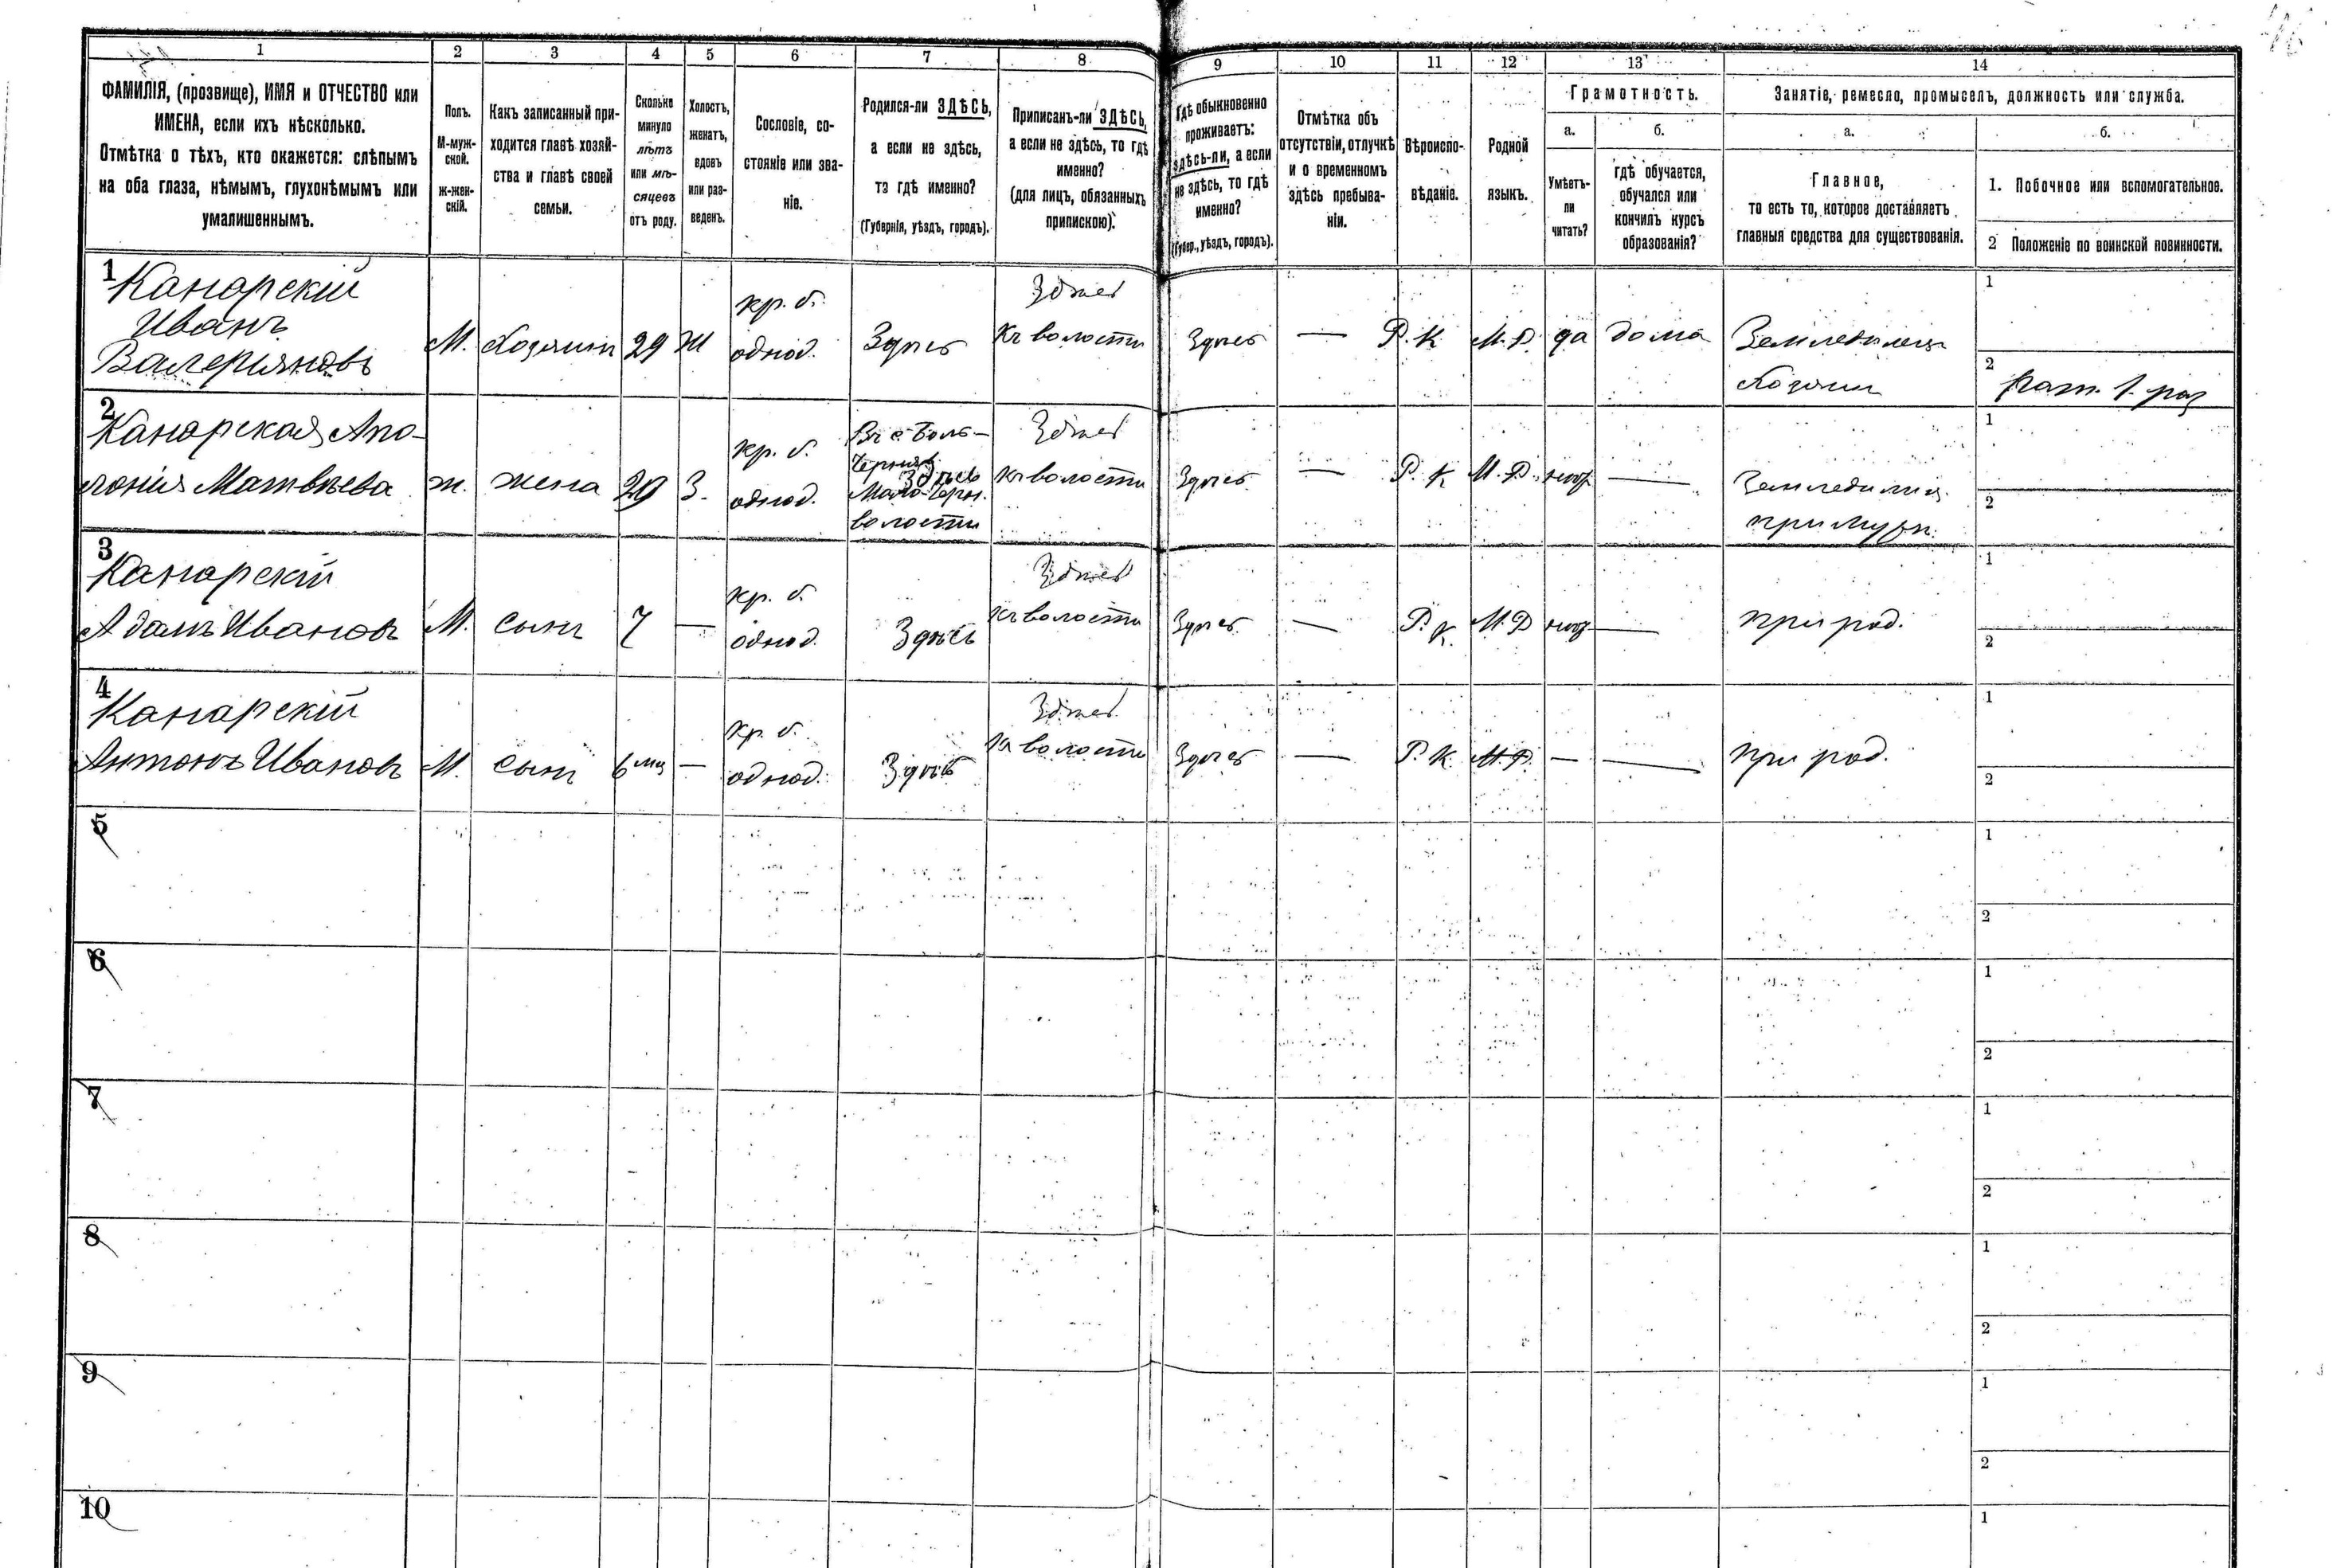 1 2 3 4 5 6 7 8 9 10 11 12 13 14
ФАМИЛІЯ, (прозвище), ИМЯ и ОТЧЕСТВО или
ИМЕНА, если ихъ нѣсколько.
Отмѣтка о тѣхъ, кто окажется: слѣпымъ
на оба глаза, нѣмымъ, глухонѣмымъ или
умалишеннымъ.
Полъ.
М-муж-
ской.
ж-жен-
скій.
Какъ записанный при-
ходится главѣ хозяй-
ства и главѣ своей
семьи.
Сколько
минуло
лѣтъ
или мѣ-
сяцевъ
отъ роду.
Холостъ,
женатъ,
вдовъ
или раз-
веденъ.
Сословіе, со-
стояніе или зва-
ніе.
Родился-ли ЗДѢСЬ,
а если не здѣсь,
то гдѣ именно?
(Губернія, уѣздъ, городъ).
Приписанъ-ли ЗДѢСЬ,
а если не здѣсь, то гдѣ
именно?
(для лицъ, обязанныхъ
припискою).
Гдѣ обыкновенно
проживаетъ:
здѣсь-ли, а если
не здѣсь, то гдѣ
именно?
(Губер., уѣздъ, городъ).
Отмѣтка объ
отсутствіи, отлучкѣ
и о временномъ
здѣсь пребыва-
ніи.
Вѣроиспо-
вѣданіе.
Родной
языкъ.
Грамотность.
а.
Умѣетъ-
ли
читать?
б.
гдѣ обучается,
обучался или
кончилъ курсъ
образованія?
Занятіе, ремесло, промыселъ, должность или служба.
а.
Главное,
то есть то, которое доставляетъ
главныя средства для существованія.
б.
1. Побочное или вспомогательное.
2 Положеніе по воинской повинности.
1
Канарскій
Иванъ
Валеріяновъ
М.
Хозяинъ
29
Ж
кр. б.
однод.
Здѣсь
Здѣсь
Къ волости
Здѣсь
—
Р. К
да
дома
Земледѣлецъ
Хозяин
1
2
2
Канарская Апо-
лонія Матвѣева
ж.
жена
29
З.
кр. б.
однод.
Здѣсь
волости
Здѣсь
Къ волости
Здѣсь
—
Р. К
—
при мужѣ.
1
2
3
Канарскій
Адамъ Ивановъ
М.
сынъ
7
—
кр. б.
однод.
Здѣсь
Здѣсь
Къ волости
Здѣсь
—
Р. К.
—
при род.
1
2
4
Канарскій
Антонъ Ивановъ
М.
сынъ
6 мц
—
кр. б.
однод.
Здѣсь
Здѣсь
Къ волости
Здѣсь
—
Р. К
—
—
при род.
1
2
5
1
2
6
1
2
7
1
2
8
1
2
9
1
2
10
1